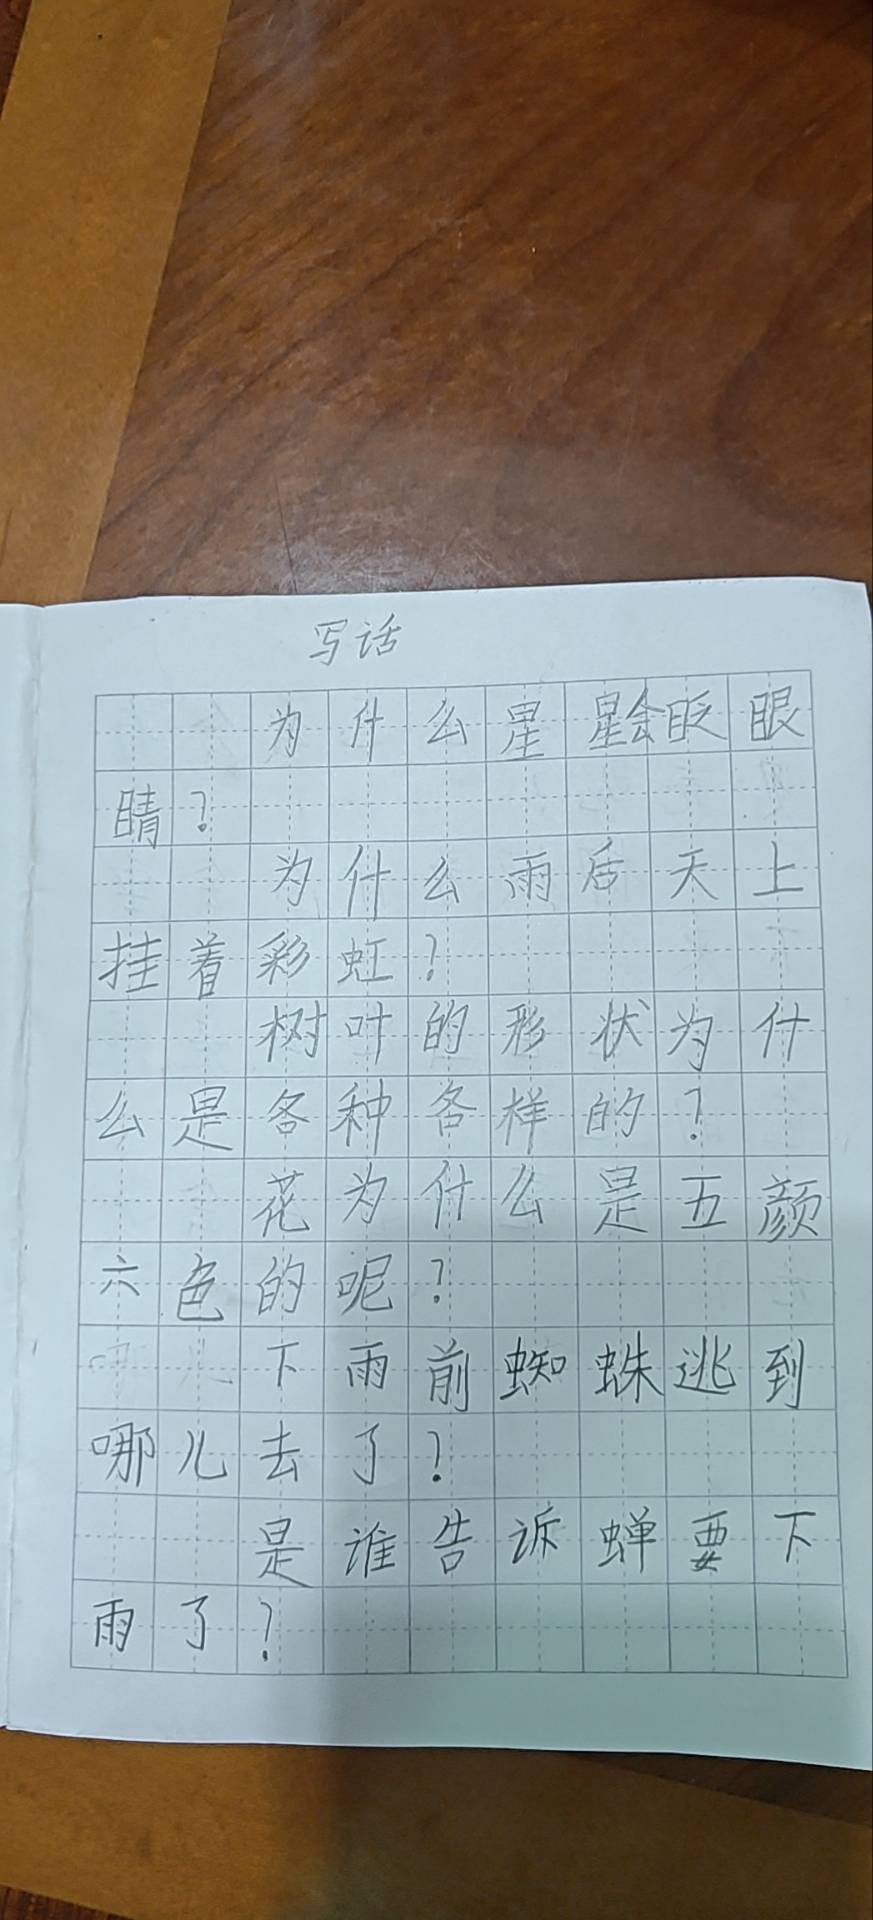 写话
为什么星星会眨眼
睛？
为什么雨后天上
挂着彩虹？
树叶的形状为什
么是各种各样的？
花为什么是五颜
六色的呢？
下雨前蜘蛛逃到
哪儿去了？
是谁告诉蝉要下
雨了？